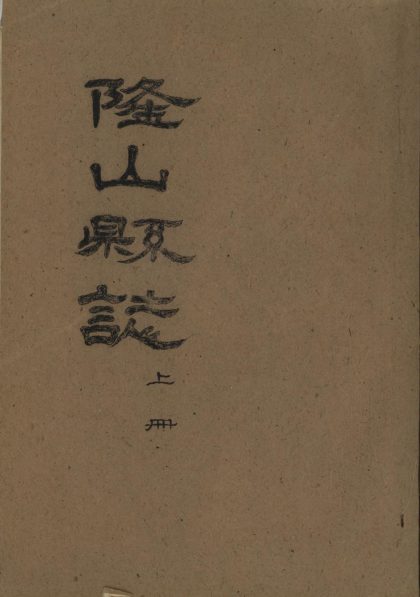 隆山縣誌
上冊